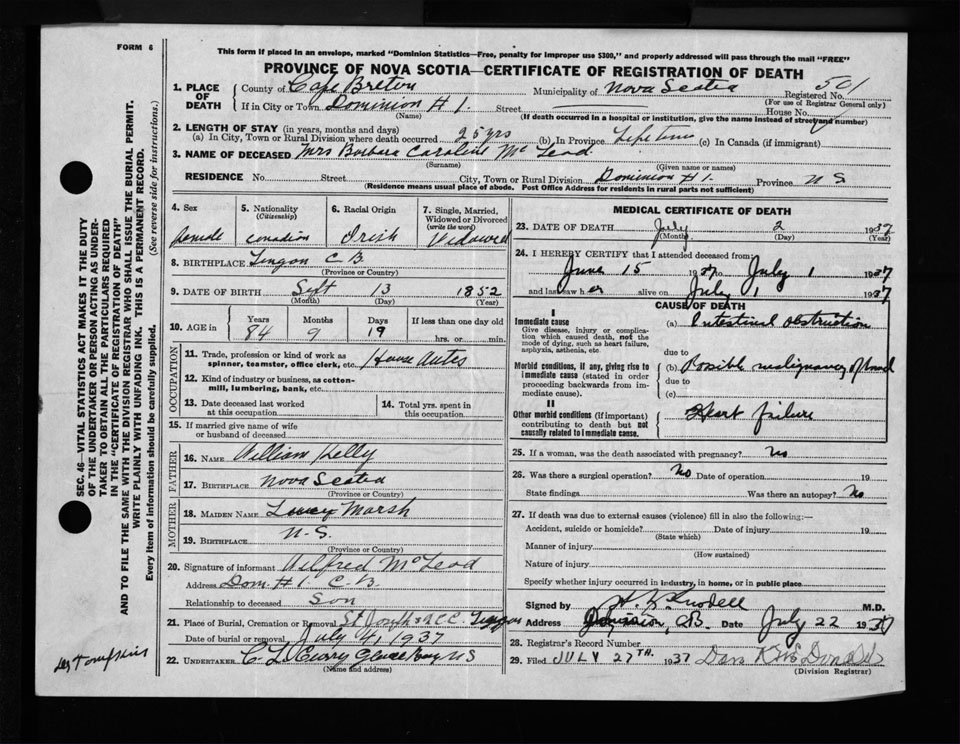 FORM 6
This form if placed in an envelope, marked "Dominion Statistics—Free, penalty for improper use $300," and properly addressed will pass through the mail "FREE"
PROVINCE OF NOVA SCOTIA—CERTIFICATE OF REGISTRATION OF DEATH
1. PLACE OF DEATH
County of Cape Breton Municipality of Nova Scotia Registered No. 501
(For use of Registrar General only)
If in City or Town Dominion # 1. Street House No.
(Name) (If death occurred in a hospital or institution, give the name instead of street and number)
2. LENGTH OF STAY (in years, months and days)
(a) In City, Town or Rural Division where death occurred 25 yrs (b) In Province Life time (c) In Canada (if immigrant)
3. NAME OF DECEASED Mrs Barbara Caroline Mc Leod.
(Surname) (Given name or names)
RESIDENCE No. Street City, Town or Rural Division Dominion # 1. Province N S
(Residence means usual place of abode. Post Office Address for residents in rural parts not sufficient)
4. Sex 5. Nationality (Citizenship) 6. Racial Origin 7. Single, Married, Widowed or Divorced (write the word)
female Canadian Irish Widowed
8. BIRTHPLACE Lingan C B
(Province or Country)
9. DATE OF BIRTH Sept 13 1852
(Month) (Day) (Year)
10. AGE in Years Months Days If less than one day old
84 9 19 hrs. or min.
OCCUPATION
11. Trade, profession or kind of work as spinner, teamster, office clerk, etc. House duties
12. Kind of industry or business, as cotton-mill, lumbering, bank, etc.
13. Date deceased last worked at this occupation 14. Total yrs. spent in this occupation
15. If married give name of wife or husband of deceased
FATHER
16. NAME William Kelly
17. BIRTHPLACE Nova Scotia
(Province or Country)
MOTHER
18. MAIDEN NAME Marsh
19. BIRTHPLACE N-S.
(Province or Country)
20. Signature of informant Wilfred McLeod
Address Dom. # 1. C-B.
Relationship to deceased Son
21. Place of Burial, Cremation or Removal St Joseph's Lingan
Date of burial or removal July 4, 1937
22. UNDERTAKER C. L. Curry Glace Bay NS
(Name and address)
MEDICAL CERTIFICATE OF DEATH
23. DATE OF DEATH July 2 1937
(Month) (Day) (Year)
24. I HEREBY CERTIFY that I attended deceased from:
June 15 1937 to July 1 1937
and last saw her alive on July 1 1937
CAUSE OF DEATH
I
Immediate cause
Give disease, injury or complication which caused death, not the mode of dying, such as heart failure, asphyxia, asthenia, etc.
(a) Intestinal obstruction
due to
Morbid conditions, if any, giving rise to immediate cause (stated in order proceeding backwards from immediate cause).
(b) Possible malignancy of bowel
due to
(c)
II
Other morbid conditions (if important) contributing to death but not causally related to immediate cause.
Heart failure
25. If a woman, was the death associated with pregnancy? No
26. Was there a surgical operation? No Date of operation 19
State findings Was there an autopsy? No
27. If death was due to external causes (violence) fill in also the following:—
Accident, suicide or homicide? Date of injury 19
(State which)
Manner of injury
(How sustained)
Nature of injury
Specify whether injury occurred in industry, in home, or in public place
Signed by M.D.
Address Dominion, C.B. Date July 22 1937
28. Registrar's Record Number
29. Filed JULY 27TH. 1937 Dan
(Division Registrar)
SEC. 46—VITAL STATISTICS ACT MAKES IT THE DUTY
OF THE UNDERTAKER OR PERSON ACTING AS UNDER-
TAKER TO OBTAIN ALL THE PARTICULARS REQUIRED
IN THE "CERTIFICATE OF REGISTRATION OF DEATH"
AND TO FILE THE SAME WITH THE DIVISION REGISTRAR WHO SHALL ISSUE THE BURIAL PERMIT.
WRITE PLAINLY WITH UNFADING INK. THIS IS A PERMANENT RECORD.
Every item of information should be carefully supplied. (See reverse side for instructions.)